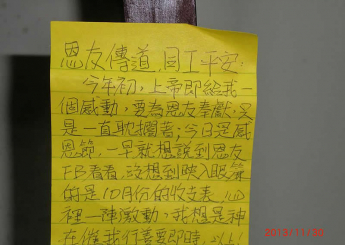 恩友傳道、同工平安：
今年初，上帝即給我一
個感動，要為恩友奉獻；只
是一直耽擱著；今日是感
恩節，一早就想說到恩友
FB看看，沒想到映入眼簾
的是10月份的收支表，心
裡一陣激動，我想是神
在催我行善要即時，以
2013/11/